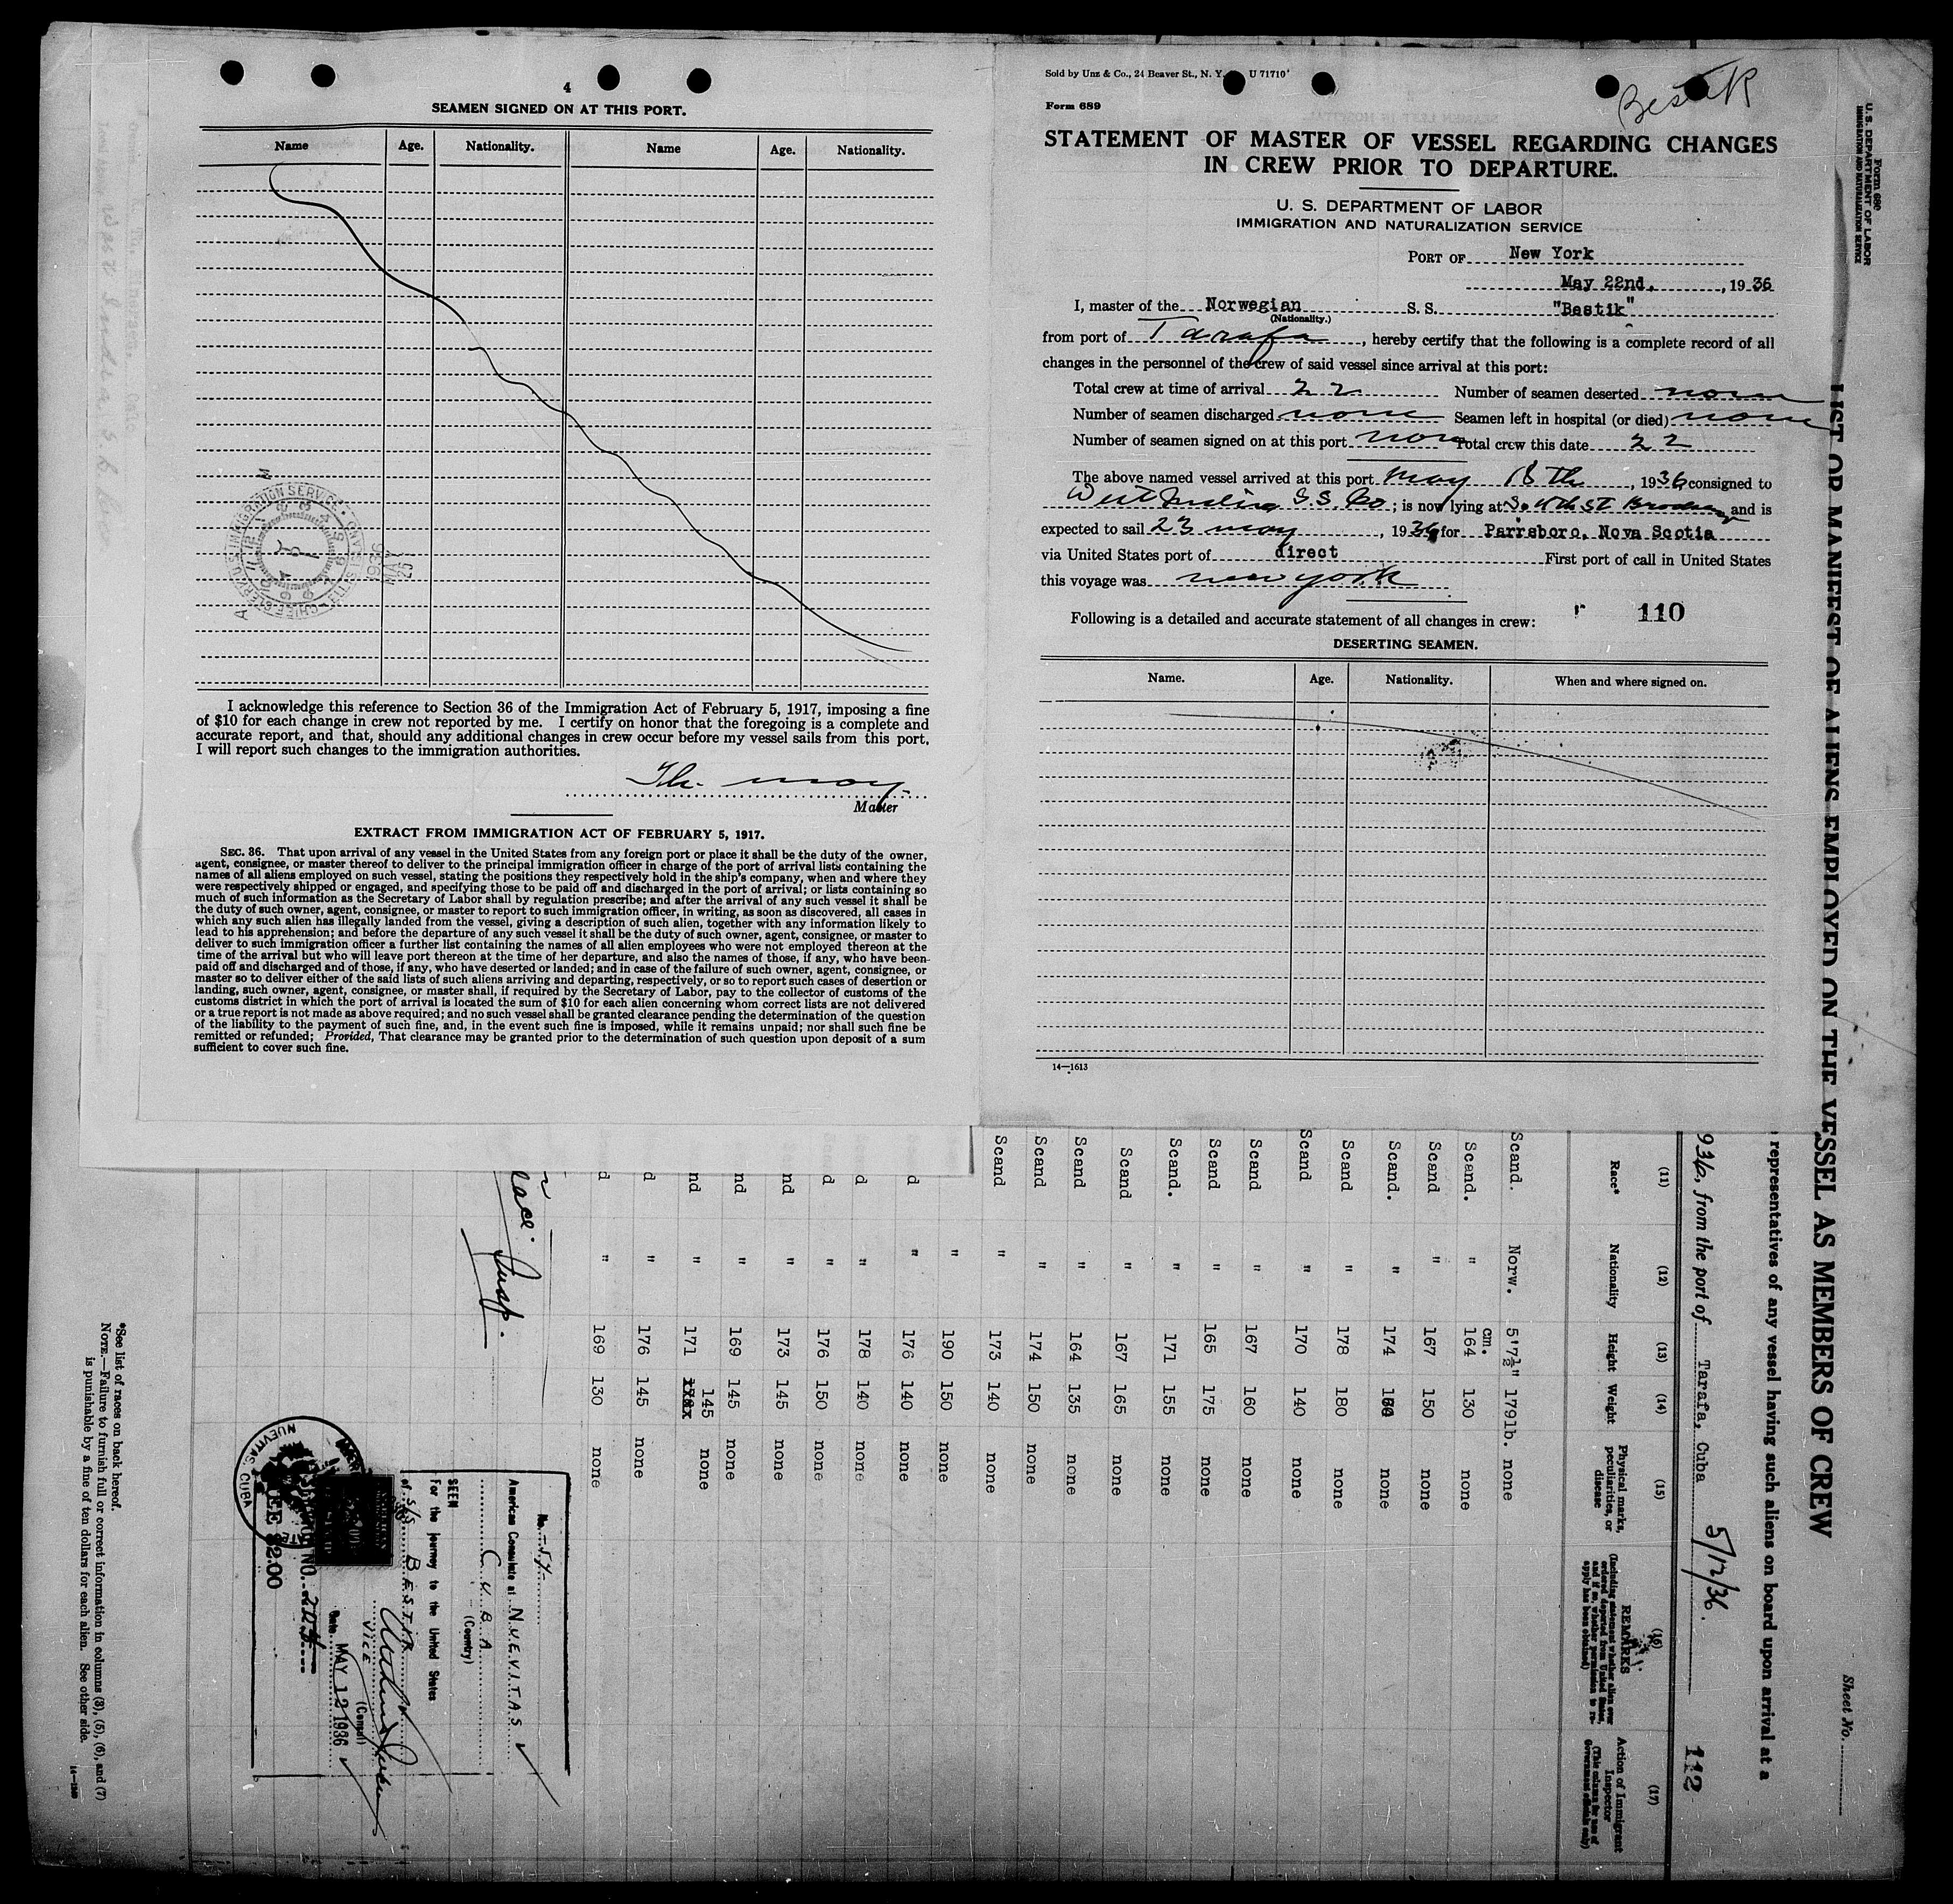 4
SEAMEN SIGNED ON AT THIS PORT.
Name Age. Nationality. Name Age. Nationality.
CHIEF CLERK U.S. IMMIGRATION SERVICE
1936
MAY
25
I acknowledge this reference to Section 36 of the Immigration Act of February 5, 1917, imposing a fine
of $10 for each change in crew not reported by me. I certify on honor that the foregoing is a complete and
accurate report, and that, should any additional changes in crew occur before my vessel sails from this port,
I will report such changes to the immigration authorities.
Master
EXTRACT FROM IMMIGRATION ACT OF FEBRUARY 5, 1917.
SEC. 36. That upon arrival of any vessel in the United States from any foreign port or place it shall be the duty of the owner,
agent, consignee, or master thereof to deliver to the principal immigration officer in charge of the port of arrival lists containing the
names of all aliens employed on such vessel, stating the positions they respectively hold in the ship's company, when and where they
were respectively shipped or engaged, and specifying those to be paid off and discharged in the port of arrival; or lists containing so
much of such information as the Secretary of Labor shall by regulation prescribe; and after the arrival of any such vessel it shall be
the duty of such owner, agent, consignee, or master to report to such immigration officer, in writing, as soon as discovered, all cases in
which any such alien has illegally landed from the vessel, giving a description of such alien, together with any information likely to
lead to his apprehension; and before the departure of any such vessel it shall be the duty of such owner, agent, consignee, or master to
deliver to such immigration officer a further list containing the names of all alien employees who were not employed thereon at the
time of the arrival but who will leave port thereon at the time of her departure, and also the names of those, if any, who have been
paid off and discharged and of those, if any, who have deserted or landed; and in case of the failure of such owner, agent, consignee, or
master so to deliver either of the said lists of such aliens arriving and departing, respectively, or so to report such cases of desertion or
landing, such owner, agent, consignee, or master shall, if required by the Secretary of Labor, pay to the collector of customs of the
customs district in which the port of arrival is located the sum of $10 for each alien concerning whom correct lists are not delivered
or a true report is not made as above required; and no such vessel shall be granted clearance pending the determination of the question
of the liability to the payment of such fine, and, in the event such fine is imposed, while it remains unpaid; nor shall such fine be
remitted or refunded; Provided, That clearance may be granted prior to the determination of such question upon deposit of a sum
sufficient to cover such fine.
Sold by Unz & Co., 24 Beaver St., N. Y. U 71710
Bestik
Form 689
STATEMENT OF MASTER OF VESSEL REGARDING CHANGES
IN CREW PRIOR TO DEPARTURE.
U. S. DEPARTMENT OF LABOR
IMMIGRATION AND NATURALIZATION SERVICE
PORT OF New York
May 22nd, , 1936
I, master of the Norwegian S. S. "Bestik"
(Nationality.)
from port of Tarafa , hereby certify that the following is a complete record of all
changes in the personnel of the crew of said vessel since arrival at this port:
Total crew at time of arrival 22 Number of seamen deserted none
Number of seamen discharged none Seamen left in hospital (or died) none
Number of seamen signed on at this port none Total crew this date 22
The above named vessel arrived at this port May 18th , 1936 consigned to
West Indies S.S. Co ; is now lying at and is
expected to sail 23 may , 1936 for Parrsboro, Nova Scotia
via United States port of direct First port of call in United States
this voyage was new york
Following is a detailed and accurate statement of all changes in crew: 110
DESERTING SEAMEN.
Name. Age. Nationality. When and where signed on.
14—1613
Form 680
U. S. DEPARTMENT OF LABOR
IMMIGRATION AND NATURALIZATION SERVICE
LIST OR MANIFEST OF ALIENS EMPLOYED ON THE VESSEL AS MEMBERS OF CREW
Sheet No.
representatives of any vessel having such aliens on board upon arrival at a
936, from the port of Tarafa, Cuba 5/12/36. 112
(11) (12) (13) (14) (15) (16) (17)
Race* Nationality Height Weight Physical marks, peculiarities, or disease REMARKS (Including statement whether alien ever ordered deported from United States, and if so, whether permission to reapply has been obtained) Action of Immigrant Inspector (This column for use of Government officials only)
Scand. Norw. 5'7½" 179lb. none
cm.
Scand. " 164 130 none
Scand " 167 150 none
Scand. " 174 none
Scand " 178 180 none
Scand " 170 140 none
Scand " 167 160 none
Scand " 165 175 none
Scand. " 171 155 none
Scand " 167 165 none
Scand " 164 135 none
Scand " 174 150 none
Scand " 173 140 none
" 190 150 none
d " 176 140 none
d " 178 140 none
d " 176 150 none
nd " 173 145 none
nd " 169 145 none
nd " 171 145 none
d " 176 145 none
d " 169 130 none
Insp.
No. 57
American Consulate at NUEVITAS
CUBA
(Country)
SEEN
For the journey to the United States
of S/S BESTIK
VICE
(Consul)
Date MAY 12 1936
NO. 204
FEE $2.00
NUEVITAS, CUBA
*See list of races on back hereof.
NOTE.—Failure to furnish full or correct information in columns (3), (5), (6), and (7)
is punishable by a fine of ten dollars for each alien. See other side.